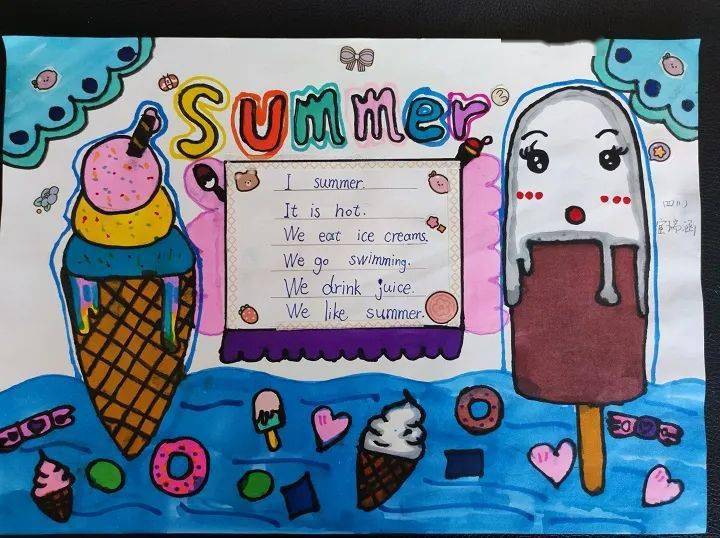 Summer
I summer.
It is hot.
We eat ice creams.
We go swimming.
We drink juice.
We like summer.
四（1）